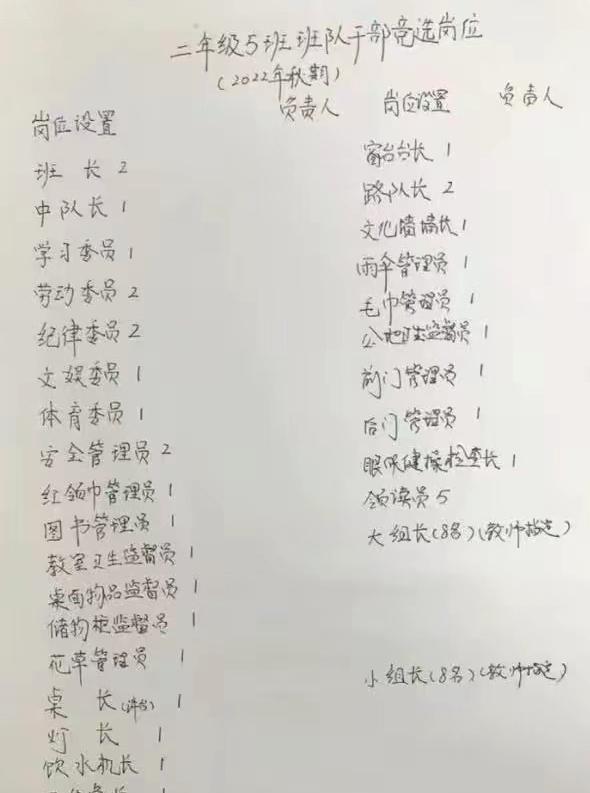 二年级5班班队干部竞选岗位
(2022年秋期)
岗位设置 负责人
班 长 2
中队长 1
学习委员 1
劳动委员 2
纪律委员 2
文娱委员 1
体育委员 1
安全管理员 2
红领巾管理员 1
图书管理员 1
教室卫生监督员 1
桌面物品监督员 1
储物柜监督员 1
花草管理员 1
桌 长(讲台) 1
灯 长 1
饮水机长 1
岗位设置 负责人
窗台台长 1
路队长 2
文化墙墙长 1
雨伞管理员 1
毛巾管理员 1
公地卫生监督员 1
前门管理员 1
后门管理员 1
眼保健操检查长 1
领读员 5
大组长(8名)(教师指定)
小组长(8名)(教师指定)